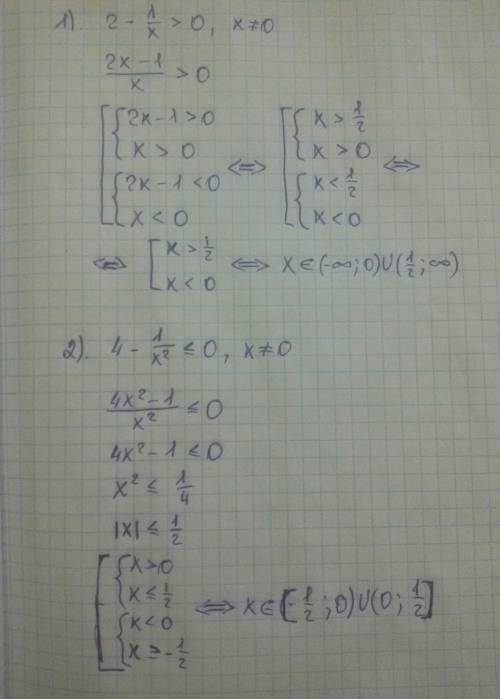 1). 2 - 1/x > 0, x ≠ 0
(2x - 1)/x > 0
[ { 2x - 1 > 0 { x > 0 { 2x - 1 < 0 { x < 0 ⇔ [ { x > 1/2 { x > 0 { x < 1/2 { x < 0 ⇔
⇔ [ x > 1/2 x < 0 ⇔ x ∈ (-∞; 0) ∪ (1/2; ∞)
2). 4 - 1/x² ≤ 0, x ≠ 0
(4x² - 1)/x² ≤ 0
4x² - 1 ≤ 0
x² ≤ 1/4
|x| ≤ 1/2
[ { x > 0 { x ≤ 1/2 { x < 0 { x ≥ -1/2 ⇔ x ∈ [-1/2; 0) ∪ (0; 1/2]